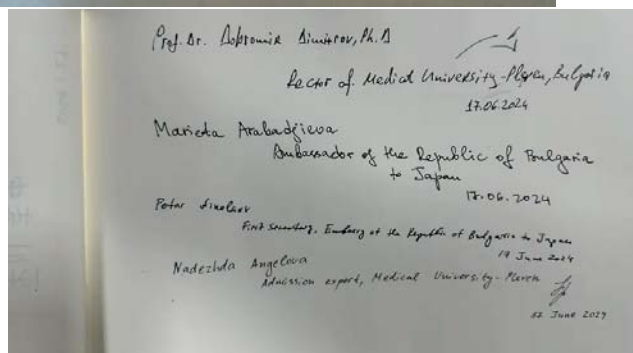 Prof. Dr. Dobromir Dimitrov, Ph.D
Rector of Medical University-Pleven, Bulgaria
17.06.2024
Marieta Arabadjieva
Ambassador of the Republic of Bulgaria
to Japan
17.06.2024
Petar Nikolaev
First Secretary, Embassy of the Republic of Bulgaria to Japan
17 June 2024
Nadezhda Angelova
Admission expert, Medical University-Pleven
17 June 2024